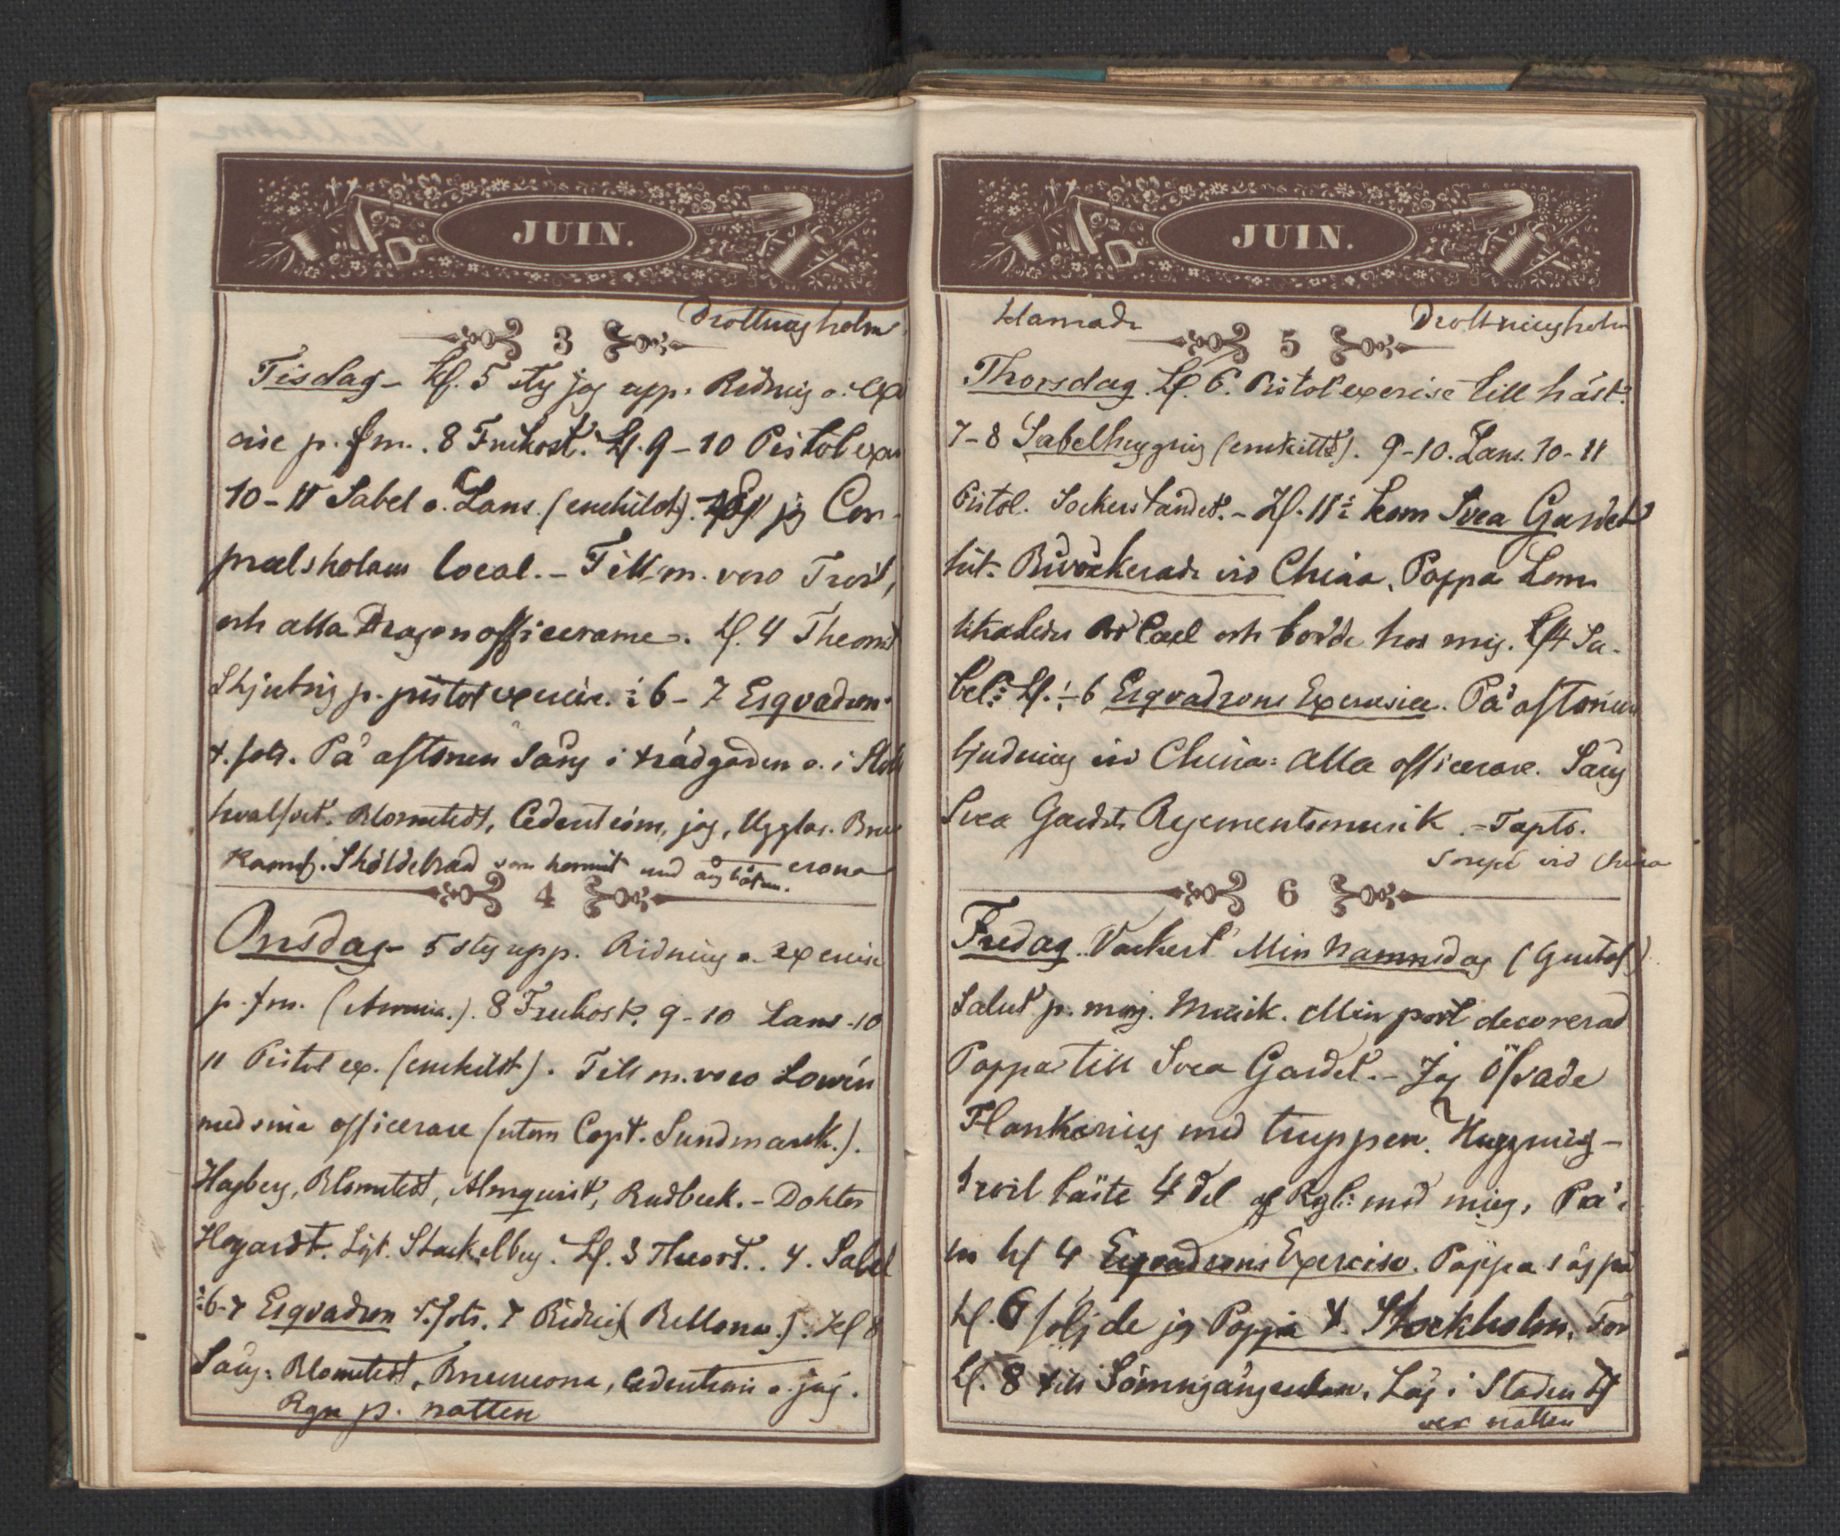 JUIN.
Drottningholm
3
Tisdag - kl. 5 steg jag upp. Ridning o. Ex
cise p. fm. 8 Frukost. Kl. 9-10 Pistol exer
10-11 Sabel o. Lans. (enskildt). jag Cor-
pralskolans local. - Till m. voro Troil,
och alla Dragonofficerarne. Kl. 4 Theoret
Skjutnig p. pistolexercise. ½ 6-7 Esqvadron
t. fots. På aftonen Sång i trädgården o. i Stall
hvalfvet. Blomstedt, Cederström, jag, Ugglas. Brune
Ramf. Sköldebrad som kommit med ångbåten. crona
4
Onsdag - 5 steg upp. Ridning o. exercise
p. fm. (Arminia.). 8 Frukost. 9-10 Lans - 10
11 Pistol ex. (enskildt). Till m. voro Lowén
med sina officerare (utom Capt. Sundmark.).
Hagberg, Blomstedt, Almquist, Rudbeck. - Doktor
Hogardt. Löjt. Stackelberg. Kl. 3 Theort.. 4. Sabel
½6-7 Esqvadron t. fots. 7 Ridning (Bellona.). Kl 8
Sång: Blomstedt, Brunecrona, Cederström o. jag.
Rgn p. natten
JUIN.
Hamade
Drottningholm
5
Thorsdag. Kl. 6. Pistolexercise till häst.
7-8 Sabelhuggnig (enskildt). 9-10. Lans. 10-11
Pistol. Sockerståndet. - Kl. 11½ kom Svea Gardet
hit. Bivuackerade vid China. Pappa kom
hit och bodde hos mig. Kl 4 Sa-
bel. Kl. ½ 6 Esqvadrons Exercise. På aftonen
bjudning vid China: Alla officerare. Sång
Svea Gardets Regementsmusik. - Tapto.
Soupé vid China
6
Fredag. Vackert. Min Namnsdag (Gustaf)
Salut p. morg. Musik. Min port decorerad
Pappa till Svea Gardet. - Jag öfvade
Flankering med truppen. Huggning -
Troil läste 4 del af Rgl: med mig. På e.
m kl 4 Esqvadrons Exercise. Pappa såg på
Kl. 6 följde jag Pappa t. Stockholm. For
kl. 8 till Sömngångerskan. Låg i Staden öf
ver natten